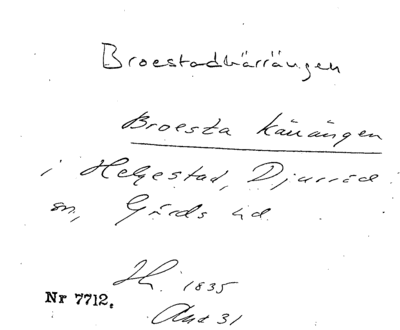 Broestadkärrängen
Broesta Kärrängen
i Helgestad, Djurröd
sn, Gärds hd.
Hi. 1835
Nr 7712. Akt 31